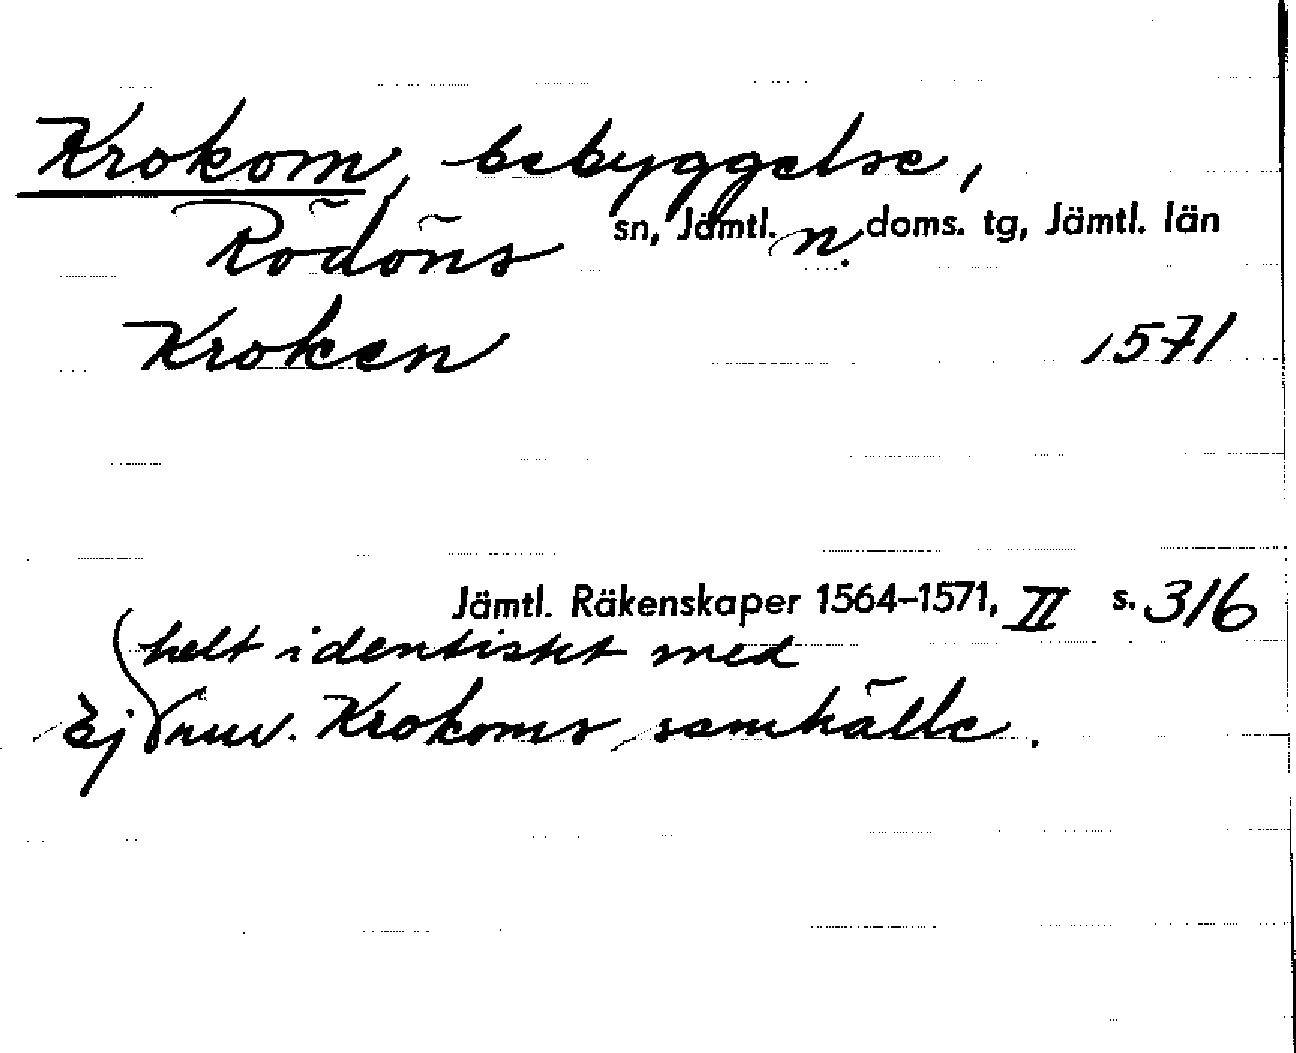 Krokom, bebyggelse,
Rödöns sn, Jämtl. n. doms. tg, Jämtl. län
Kroken 1571
Jämtl. Räkenskaper 1564–1571, II s. 316
helt identiskt med
Ej nuv. Krokoms samhälle.